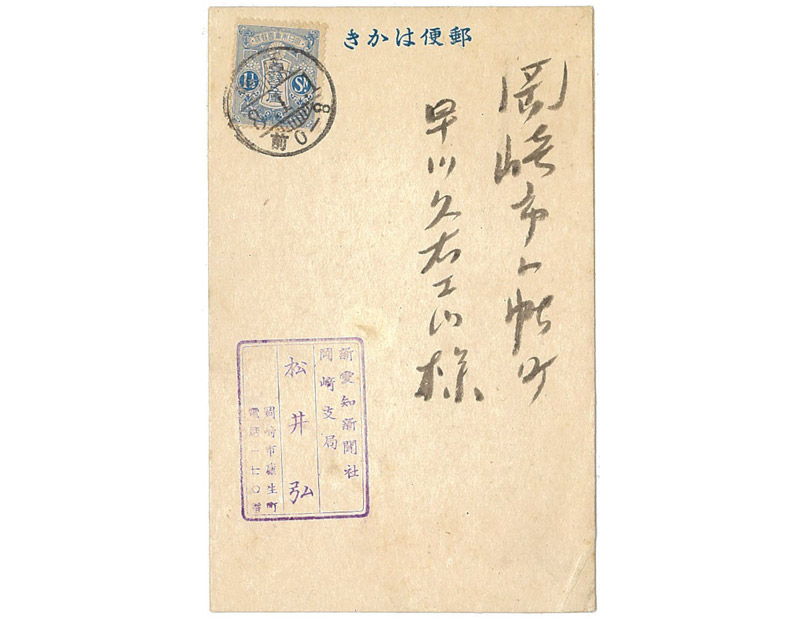 きかは便郵
岡崎市八帖町
早川久右エ門様
新愛知新聞社
岡崎支局
松井弘
岡崎市康生町
電話一七〇番
前